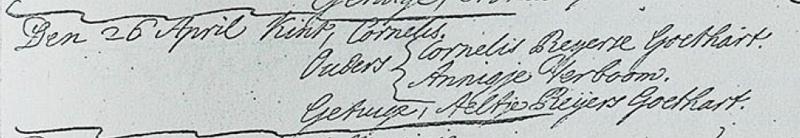 Den 26 April Kint, Cornelis.
Ouders { Cornelis Reyerse Goethart.
Annigje Verboom.
Getuige, Aeltje Reijers Goethart.